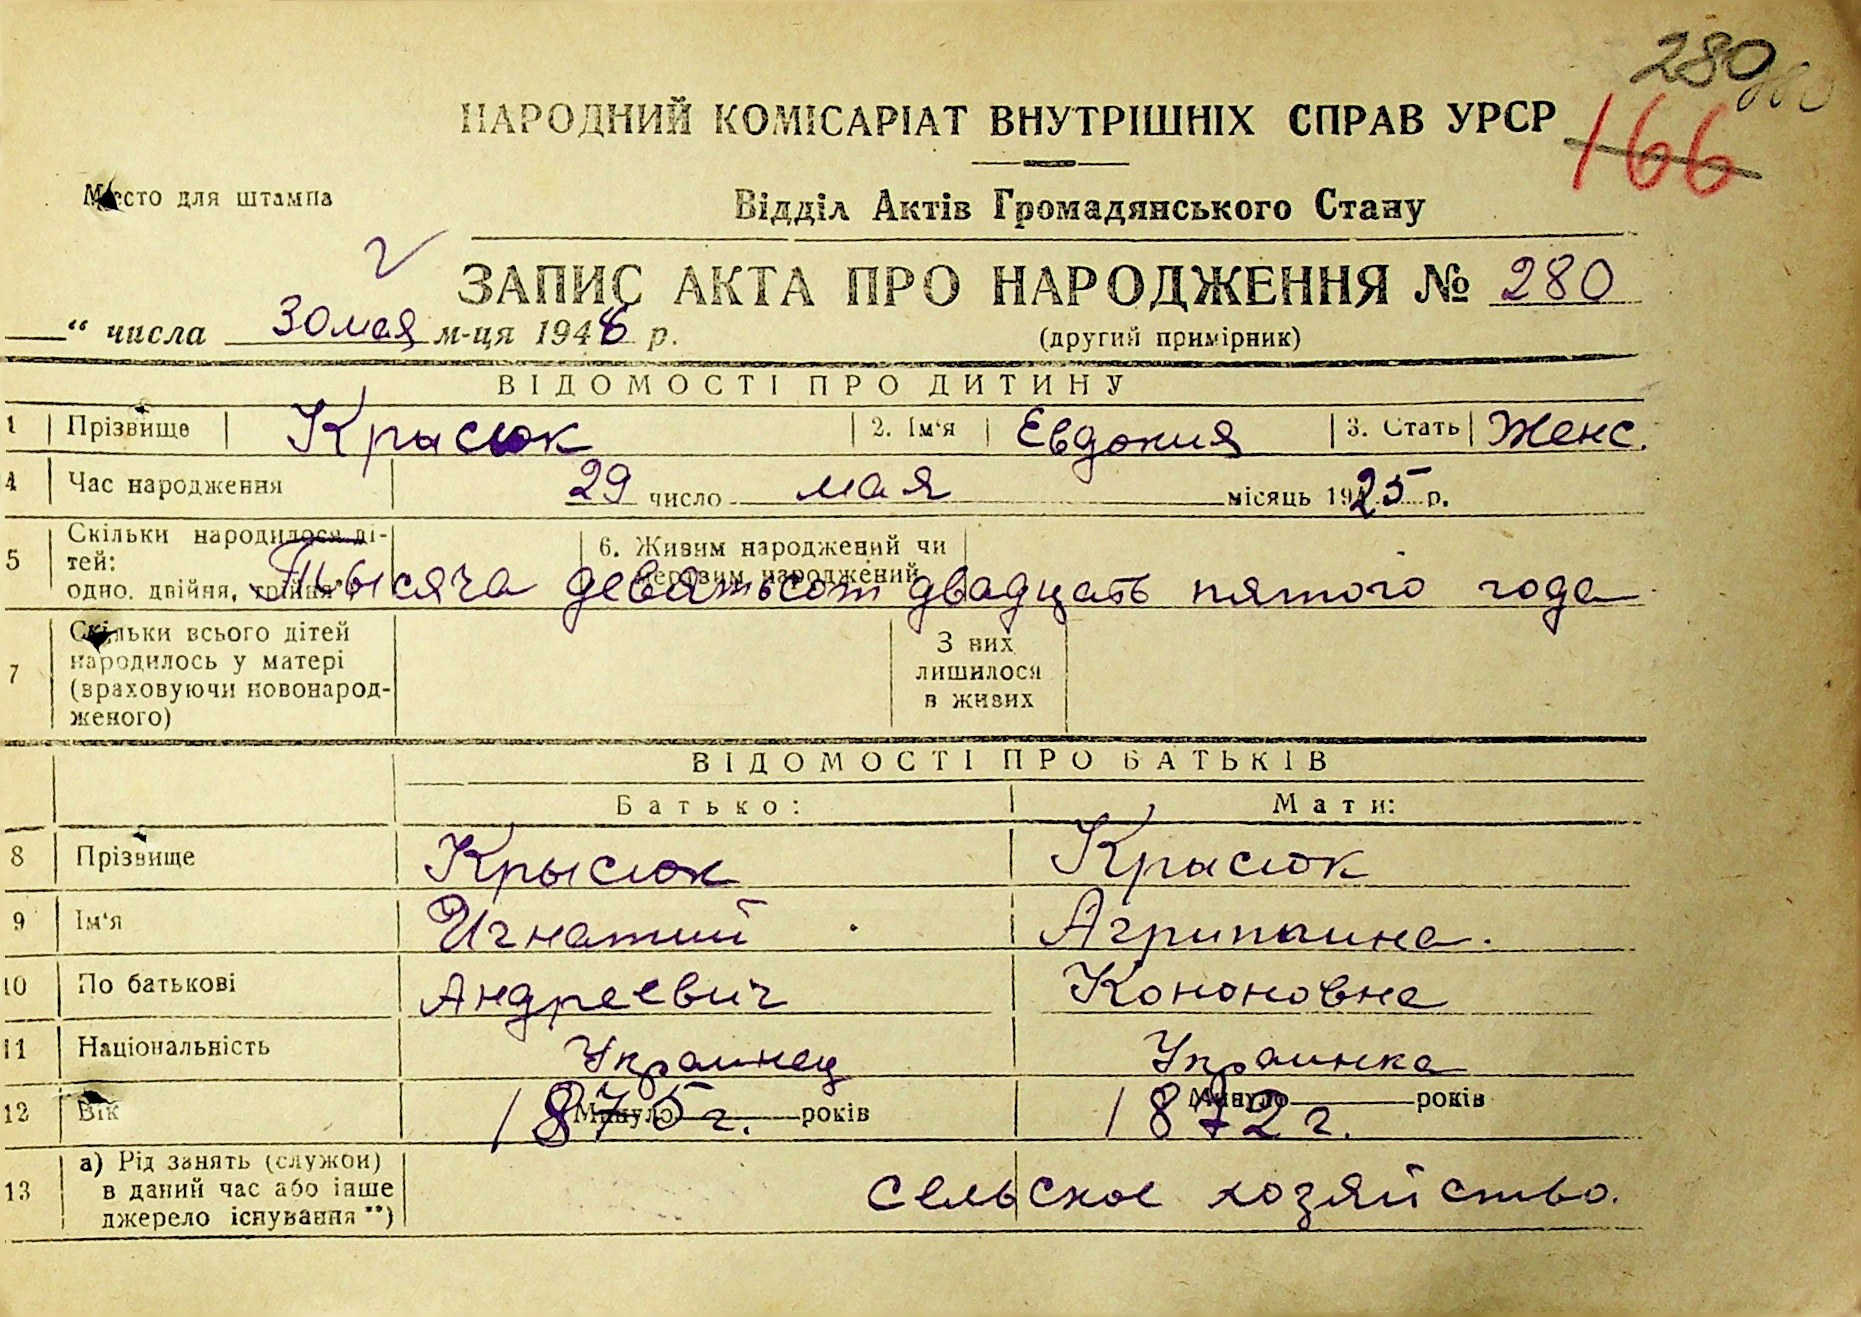 280
НАРОДНИЙ КОМІСАРІАТ ВНУТРІШНІХ СПРАВ УРСР
166
Место для штампа
Відділ Актів Громадянського Стану
ЗАПИС АКТА ПРО НАРОДЖЕННЯ № 280
“ числа 30 мая м-ця 1946 р.
(другий примірник)
ВІДОМОСТІ ПРО ДИТИНУ
1 Прізвище Крысюк 2. Ім'я Евдокия 3. Стать Женс.
4 Час народження 29 число мая місяць 1925 р.
5 Скільки народилося ді-
тей:
одно. двійня, трійня*)
6. Живим народжений чи
мертвим народжений
Тысяча девятьсот двадцать пятого года
7 Скільки всього дітей
народилось у матері
(враховуючи новонарод-
женого)
З них
лишилося
в живих
ВІДОМОСТІ ПРО БАТЬКІВ
Батько: Мати:
8 Прізвище Крысюк Крысюк
9 Ім'я Игнатий Агрипина.
10 По батькові Андреевич Кононовна
11 Національність Украинец Украинка
12 Вік Минуло 1875 г. років Минуло 1872 г. років
13 а) Рід занять (служби)
в даний час або інше
джерело існування **)
сельское хозяйство.